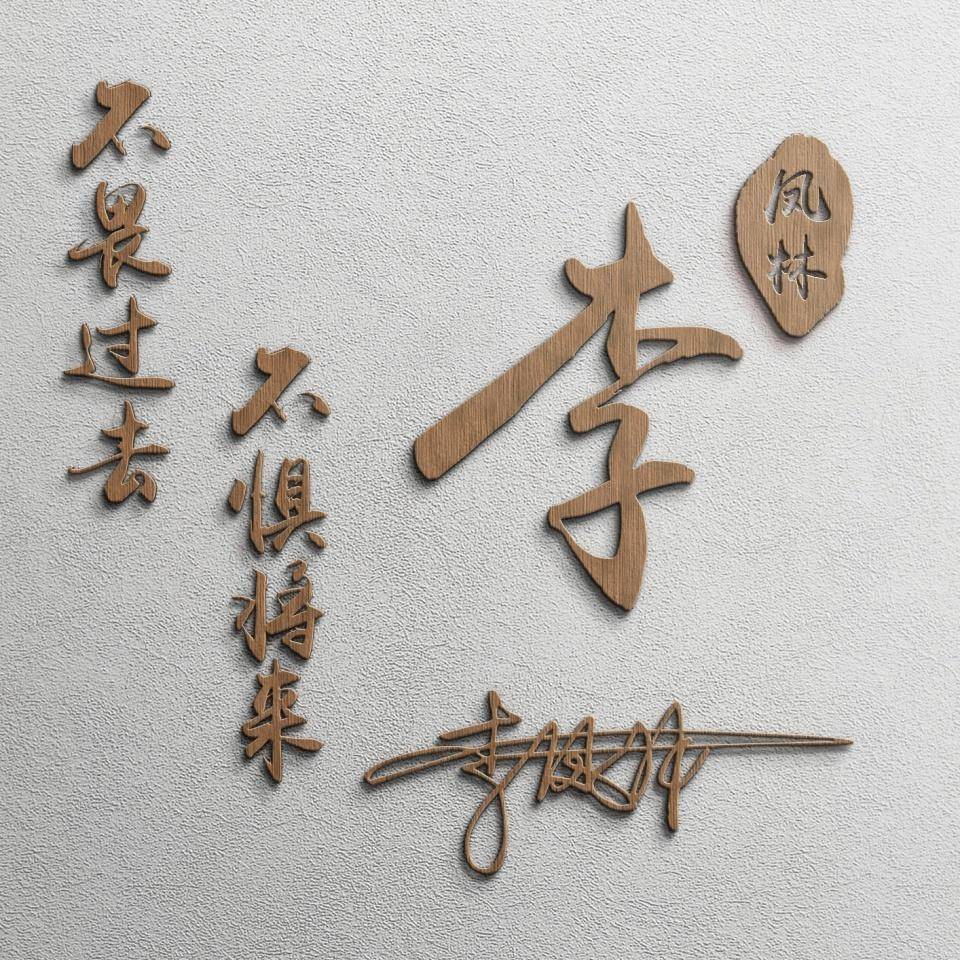 不畏过去
不惧将来
李
凤林
李凤林